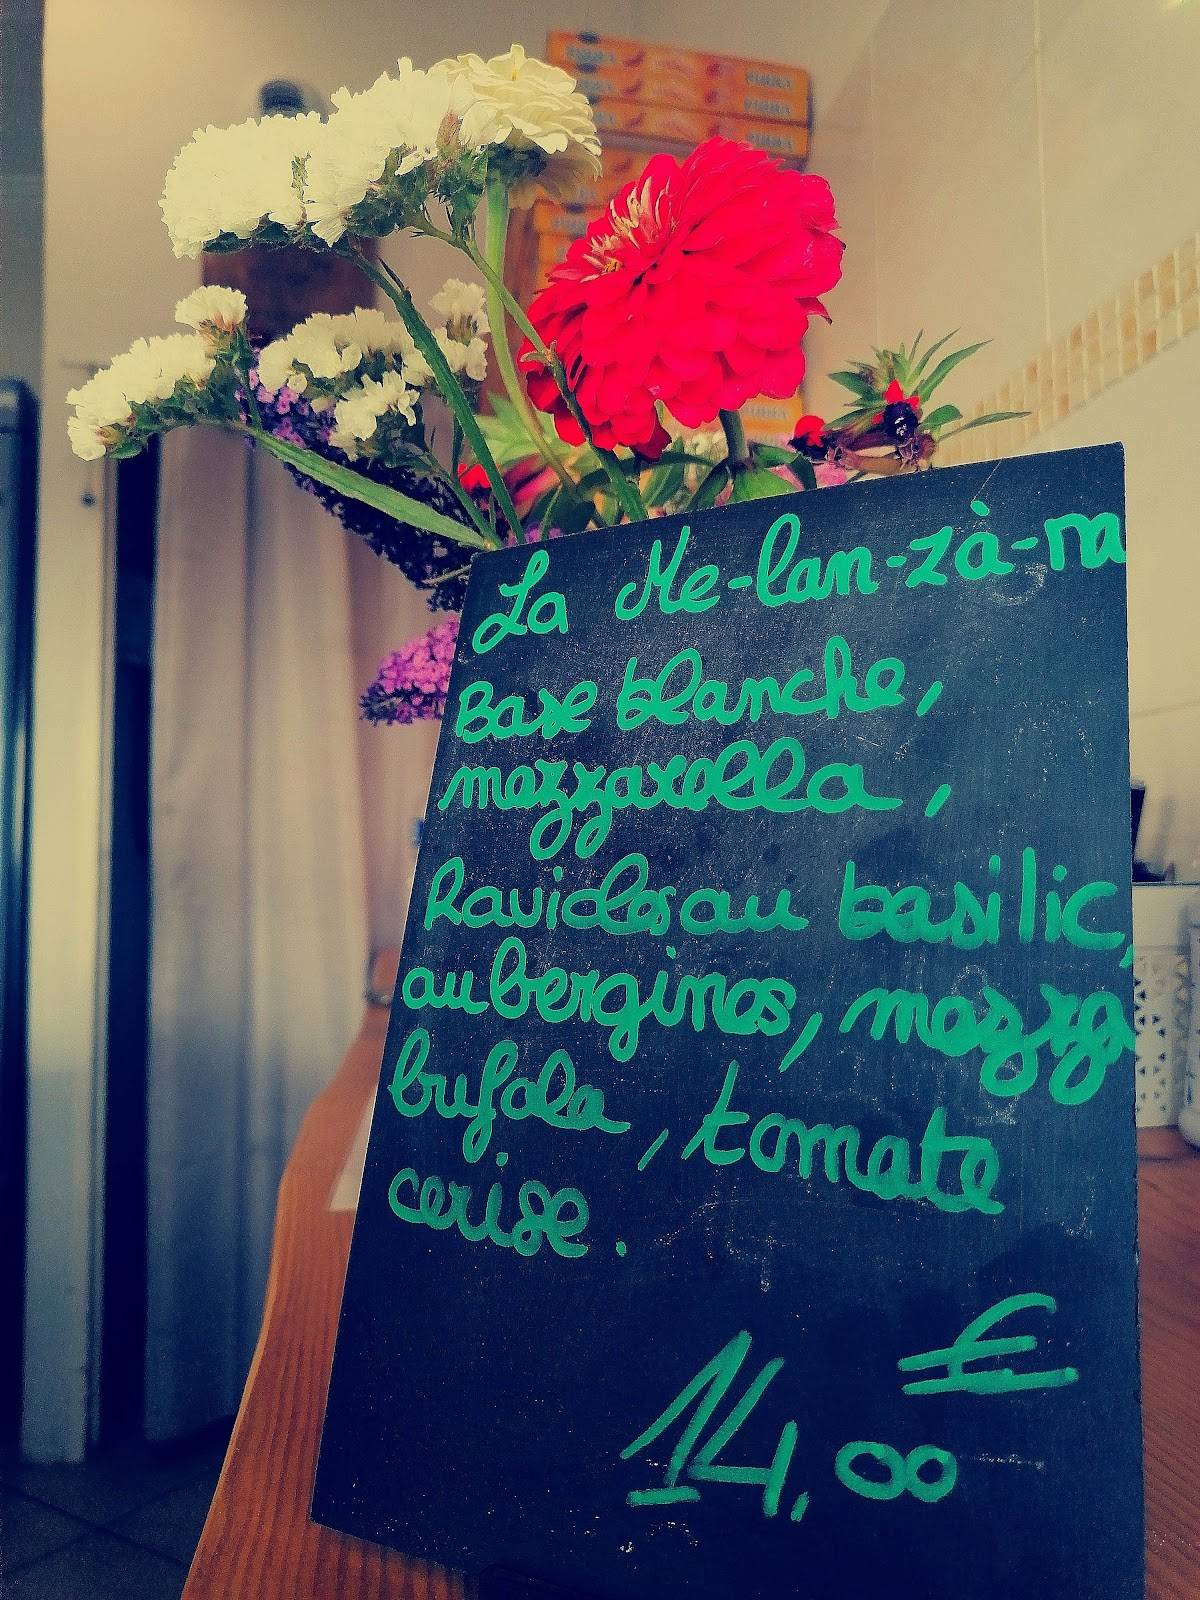 La Me-lan-zà-na
Base blanche,
mozzarella,
Ravioles au basilic,
aubergines, mozza
bufala, tomate
cerise.
€
14,00